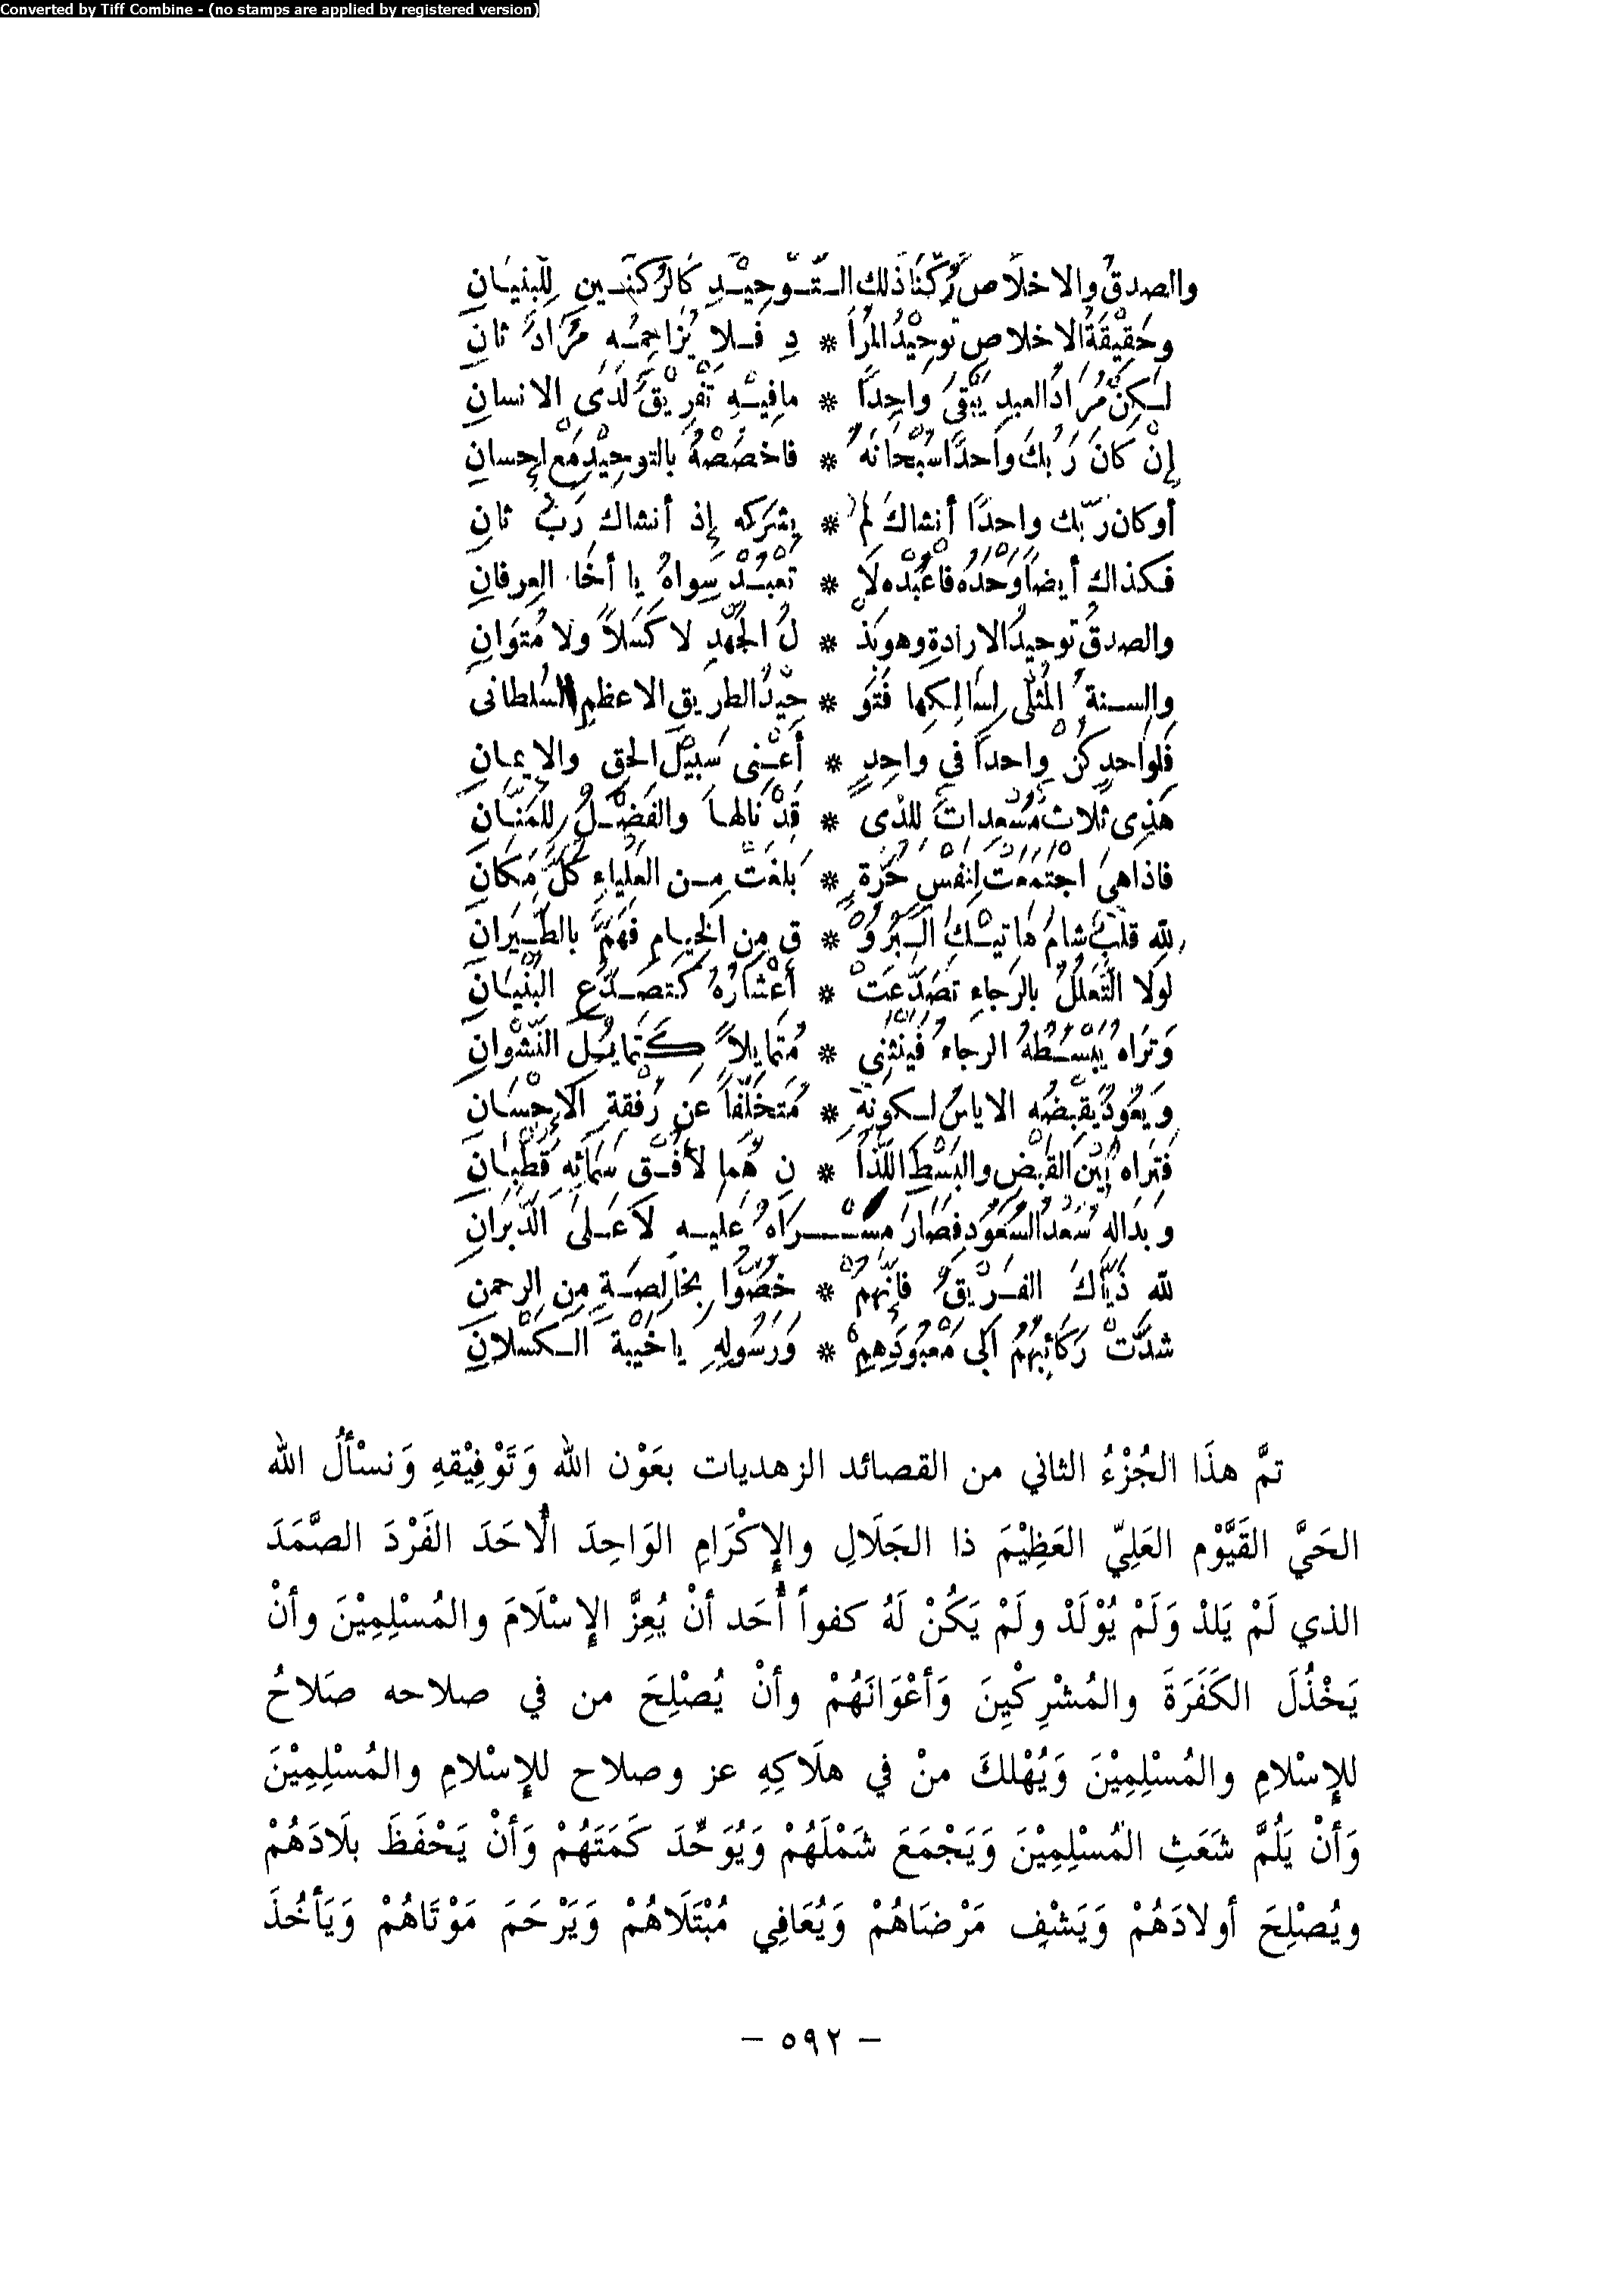 Converted by Tiff Combine - (no stamps are applied by registered version)
والصدقُ والاخلَاص رُكْنَا ذلك التَّوْحِيْدِ كَالرُّكنَينِ لِلْبُنيَانِ
وحَقِيْقَةُ الاخلاصِ تَوحِيْدُ المُرَا * دِ فَلا يُزَاحِمُهُ مُرَادٌ ثانِ
لكِنْ مُرَادُ العبدِ يَبْقَى وَاحِدًا * مافِيْهِ تَفْرِيْقٌ لَدَى الانسانِ
إنْ كَانَ رَبُّكَ واحدًا سُبْحَانَهُ * فاخصُصْهُ بالتوحِيْدِ مَعْ إحسانِ
أوكان رَبُّك واحدًا أنشاكَ لم * يشرَكه إذ أنشاك رَبٌّ ثانِ
فكذاك أيضاً وَحْدَهُ فاعْبُدْه لَا * تَعْبُدْ سِواهُ يا أخَا العِرفانِ
والصدقُ توحيدُ الارادةِ وهو بَذْ * لُ الجُهْدِ لا كَسَلاً ولا مُتوَانِ
والسنةُ المُثْلَى لِسَالِكِها فَتَوْ * حِيْدُ الطريقِ الاعظمِ السُلطانى
فَلِوَاحدٍ كُنْ واحداً في واحِدٍ * أعْنِى سَبِيْلَ الحقِ والإيمانِ
هَذِى ثلاث مُسْعِداتٌ للذى * قَدْ نَالها والفَضْلُ لِلمَنَّانِ
فاذا هىَ اجْتمعَتْ لِنَفْسٍ حُرَّةٍ * بَلغَتْ مِن العَلياءِ كُلَّ مَكَانِ
لِلهِ قلبٌ شامَ هَاتيْكَ البُرُوْ * ق مِن الخِيامِ فَهَمَّ بالطَّيَرانِ
لَولَا التَّعَلُلُ بالرَجاءِ تَصَدَّعَتْ * أَعْشَارُهُ كَتَصَدُّعِ البُنْيَانِ
وَتَرَاه يَبْسُطُهُ الرجاءُ فيَنْثَنِى * مُتمَايلاً كَتمايُلِ النَّشْوانِ
وَيَعُودُ يَقْبِضُه الاياسُ لكونِهِ * مُتَخَلِّفاً عن رُفْقَةِ الْإِحْسَانِ
فَتَراه بَيْنَ القَبْضِ والبَسْطِ اللَّذَا * نِ هُما لأُفْقِ سَمَائِهِ قُطْبَانِ
وبَدَا لهُ سَعْدُ السُعُوْدِ فصَارَ مَسْرَاهُ عَليهِ لَا عَلىَ الدَّبَرَانِ
للهِ ذَيَّاكَ الفَرِيْقُ فإنَّهمْ * خُصُّوا بِخَالِصَةٍ مِنِ الرحمنِ
شدَّتْ رَكَائِبُهُمْ الَى مَعْبُودِهِمْ * وَرَسُولِهِ يا خَيْبةَ الكَسْلانِ
تمَّ هذَا الجُزْءُ الثاني من القصائد الزهديات بعَوْن الله وَتَوْفِيْقهِ وَنسْألُ الله
الحَيَّ القَيَّوْم العَلِيّ العَظِيْمَ ذا الجَلَالِ والإِكْرَامِ الوَاحِدَ الْأحَدَ الفَرْدَ الصَّمَدَ
الذي لَمْ يَلدْ وَلَمْ يُوْلَدْ ولَمْ يَكُنْ لَهُ كفواً أحَد أنْ يُعِزَّ الإِسْلَامَ والمُسْلِمِيْنَ وأنْ
يَخْذُلَ الكَفَرَةَ والمُشْرِكْيِنَ وَأعْوَانَهُمْ وأنْ يُصْلِحَ من في صلاحه صَلاحُ
للإِسْلامِ والمُسْلِمِيْنَ وَيُهْلكَ منْ في هلَاكِهِ عز وصلاح للإِسْلامِ والمُسْلِمِيْنَ
وَأنْ يَلُمَّ شَعَثِ المُسْلِمِيْنَ وَيَجْمَعَ شَمْلَهُمْ وَيُوَحِّدَ كَمَتَهُمْ وَأنْ يَحْفَظَ بلَادَهُمْ
ويُصْلِحَ أولادَهُمْ وَيَشْفِ مَرْضَاهُمْ وَيُعَافِي مُبْتَلَاهُمْ وَيَرْحَمَ مَوْتَاهُمْ وَيَأخُذَ
– ٥٩٢ –